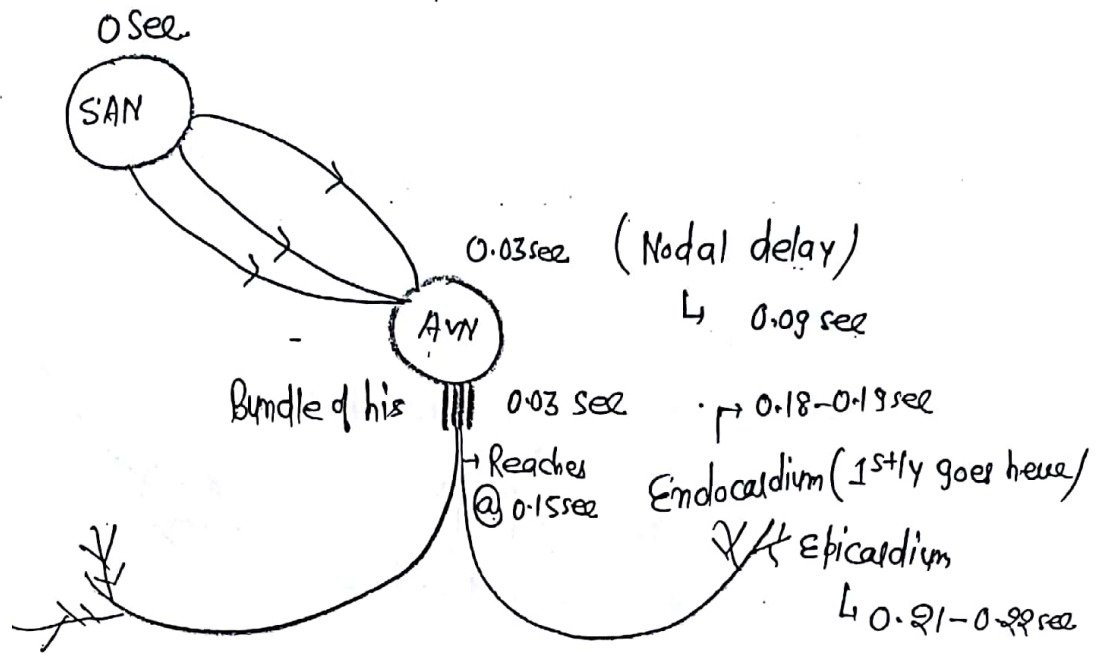 0 Sec.
SAN
0.03 sec (Nodal delay)
↳ 0.09 sec
AVN
Bundle of his 0.03 sec
→ 0.18-0.19 sec
→ Reaches
@ 0.15 sec
Endocardium (1stly goes here)
Epicardium
↳ 0.21-0.22 sec